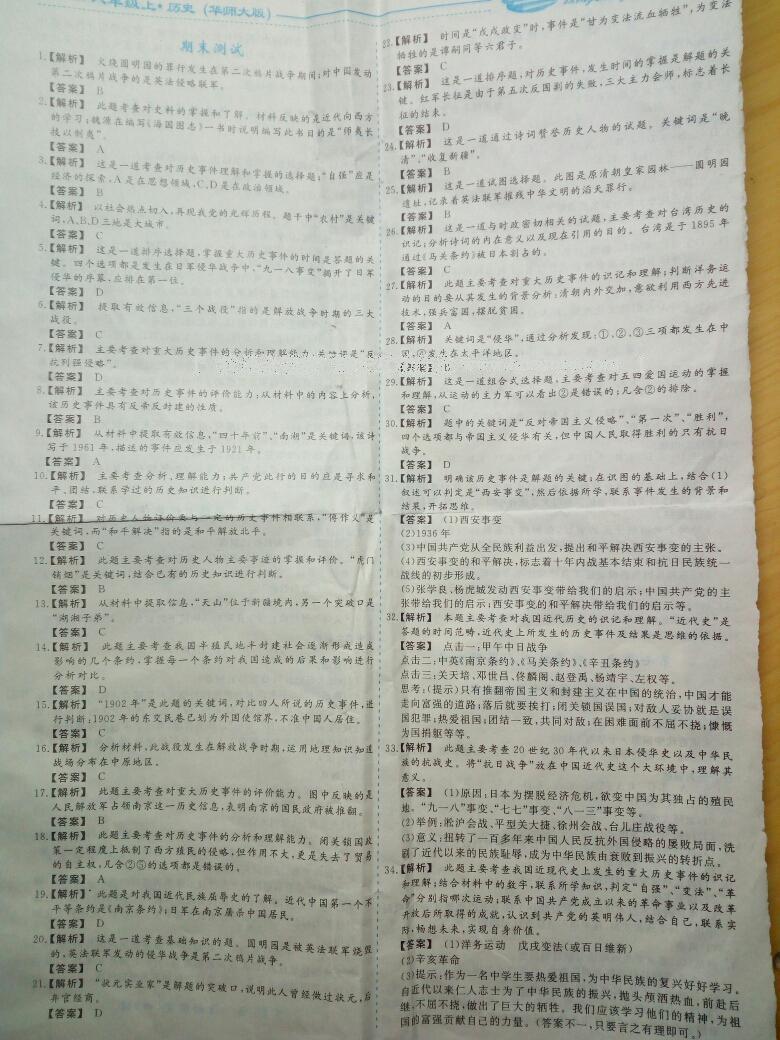 八年级上·历史(华师大版)
期末测试
1.【解析】 火烧圆明园的罪行发生在第二次鸦片战争期间;对中国发动
第二次鸦片战争的是英法侵略联军。
【答案】 B
2.【解析】 此题考查对史料的掌握和了解。材料反映的是近代向西方
的学习;魏源在编写《海国图志》一书时说明编写此书目的是“师夷长
技以制夷”。
【答案】 A
3.【解析】 这是一道考查对历史事件理解和掌握的选择题;“自强”应是
经济的探索,A是在思想领域,C、D是在政治领域。
【答案】 B
4.【解析】 以社会热点切入,再现我党的光辉历程。题干中“农村”是关键
词,A、B、D三地是大城市。
【答案】 C
5.【解析】 这是一道排序选择题,掌握重大历史事件的时间是答题的关
键。四个选项都是发生在日军侵华战争中,“九一八事变”揭开了日军
侵华的序幕,应排在第一位。
【答案】 D
6.【解析】 提取有效信息,“三个战役”指的是解放战争时期的三大
战役。
【答案】 C
7.【解析】 主要考查对重大历史事件的分析和理解能力,关键词是“反
抗列强侵略”。
【答案】 D
8.【解析】 主要考查对历史事件的评价能力;从材料中的内容上分析,
该历史事件具有反帝反封建的性质。
【答案】 B
9.【解析】 从材料中提取有效信息,“四十年前”、“南湖”是关键词,该诗
写于1961年,描述的事件应发生于1921年。
【答案】 A
10.【解析】 主要考查分析、理解能力;共产党此行的目的应是寻求和
平、团结,联系学过的历史知识进行判断。
【答案】 C
11.【解析】 对历史人物评价要与一定的历史事件相联系,“傅作义”是
关键词,而“和平解决”指的是和平解放北平。
【答案】 C
12.【解析】 此题主要考查对历史人物主要事迹的掌握和评价。“虎门
销烟”是关键词,结合已有的历史知识进行判断。
【答案】 B
13.【解析】 从材料中提取信息,“天山”位于新疆境内,另一个突破口是
“湖湘子弟”。
【答案】 C
14.【解析】 此题主要考查我国半殖民地半封建社会逐渐形成造成
影响的几个条约,掌握每一个条约对我国造成的后果和影响进行
分析对比。
【答案】 D
15.【解析】 “1902年”是此题的关键词,对比四人所说的历史事件,进
行判断;1902年的东交民巷已划为外国使馆界,不准中国人居住。
【答案】 C
16.【解析】 分析材料,此战役发生在解放战争时期,运用地理知识知道
战场分布在中原地区。
【答案】 C
17.【解析】 此题主要考查对重大历史事件的评价能力。图中反映的是
人民解放军占领南京这一历史信息,表明南京的国民政府被推翻。
【答案】 B
18.【解析】 此题主要考查对历史事件的分析和理解能力。闭关锁国政
策一定程度上抵制了西方殖民的侵略,但作用不大,更是失去了贸易
的自主权,凡含②⑤的选项都是错误的。
【答案】 A
19.【解析】 此题是对我国近代民族屈辱史的了解。近代中国第一个不
平等条约是《南京条约》;日军在南京屠杀中国居民。
【答案】 D
20.【解析】 这是一道考查基础知识的题。圆明园是被英法联军烧毁
的,英法联军发动的侵华战争是第二次鸦片战争。
【答案】 C
21.【解析】 “状元实业家”是解题的突破口,说明此人曾经做过状元,后
弃官经商。
【答案】 D
22.【解析】 时间是“戊戌政变”时,事件是“甘为变法流血牺牲”,为变法
牺牲的是谭嗣同等六君子。
【答案】 C
23.【解析】 这是一道排序题,对历史事件,发生时间的掌握是解题的关
键。红军长征是由于第五次反围剿的失败,三大主力会师,标志着长
征的结束。
【答案】 D
24.【解析】 这是一道通过诗词赞誉历史人物的试题。关键词是“晚
清”、“收复新疆”。
【答案】 B
25.【解析】 这是一道试图选择题。此图是原清朝皇家园林——圆明园
遗址,记录着英法联军摧残中华文明的滔天罪行。
【答案】 B
26.【解析】 这是一道与时政密切相关的试题,主要考查对台湾历史的
识记;分析诗词的内在意义以及现在引用的目的。台湾是于1895年
通过《马关条约》被日本割占的。
【答案】 C
27.【解析】 此题主要考查对重大历史事件的识记和理解;判断洋务运
动的目的要从其发生的背景分析:清朝内外交加,意欲利用西方先进
技术,强兵富国,摆脱贫困。
【答案】 A
28.【解析】 关键词是“侵华”,通过分析发现:①、②、③三项都发生在中
国,④发生在太平洋地区。
【答案】 B
29.【解析】 这是一道组合式选择题,主要考查对五四爱国运动的掌握
和理解,从运动的主力军可以看出②是错误的;凡含②的排除。
【答案】 C
30.【解析】 题中的关键词是“反对帝国主义侵略”、“第一次”、“胜利”,
四个选项都与帝国主义侵华有关,但中国人民取得胜利的只有抗日
战争。
【答案】 D
31.【解析】 明确该历史事件是解题的关键;在识图的基础上,结合(1)
叙述可以判定是“西安事变”,然后依据所学,联系事件发生的背景和
结果,开拓思维。
【答案】 (1)西安事变
(2)1936年
(3)中国共产党从全民族利益出发,提出和平解决西安事变的主张。
(4)西安事变的和平解决,标志着十年内战基本结束和抗日民族统一
战线的初步形成。
(5)张学良、杨虎城发动西安事变带给我们的启示;中国共产党的主
张带给我们的启示;西安事变的和平解决带给我们的启示等。
32.【解析】 本题主要考查对我国近代历史的识记和理解。“近代史”是
答题的时间范畴,近代史上所发生的历史事件及结果是思维的依据。
【答案】 点击一:甲午中日战争
点击二:中英《南京条约》、《马关条约》、《辛丑条约》
点击三:关天培、邓世昌、佟麟阁、赵登禹、杨靖宇、左权等。
思考:(提示)只有推翻帝国主义和封建主义在中国的统治,中国才能
走向富强的道路;落后就要挨打;闭关锁国误国;对敌人妥协就是误
国犯罪;热爱祖国;团结一致,共同对敌;在困难面前不屈不挠;慷慨
为国捐躯等等。
33.【解析】 此题主要考查20世纪30年代以来日本侵华史以及中华民
族的抗战史。将“抗日战争”放在中国近代史这个大环境中,理解其
意义。
【答案】 (1)原因:日本为摆脱经济危机,欲变中国为其独占的殖民
地。“九一八”事变、“七七”事变、“八一三”事变等。
(2)举例:淞沪会战、平型关大捷、徐州会战、台儿庄战役等。
(3)意义:扭转了一百多年来中国人民反抗外国侵略的屡败局面,洗
刷了近代以来的民族耻辱,成为中华民族由衰败到振兴的转折点。
34.【解析】 此题主要考查我国近现代史上发生的重大历史事件的识记
和理解;结合材料中的数字,联系所学知识,判定“自强”、“变法”、“革
命”分别指哪次运动;联系中国共产党成立以来的革命事业以及改革
开放后所取得的成就,认识到共产党的英明伟人,结合自己,联系实
际,畅想未来,实现自身价值。
【答案】 (1)洋务运动 戊戌变法(或百日维新)
(2)辛亥革命
(3)提示:作为一名中学生要热爱祖国,为中华民族的复兴好好学习。
自近代以来仁人志士为了中华民族的振兴,抛头颅洒热血,前赴后
继,不屈不挠,做出了巨大的牺牲。我们应该学习他们的精神,为祖
国的富强贡献自己的力量。(答案不一,只要言之有理即可。)